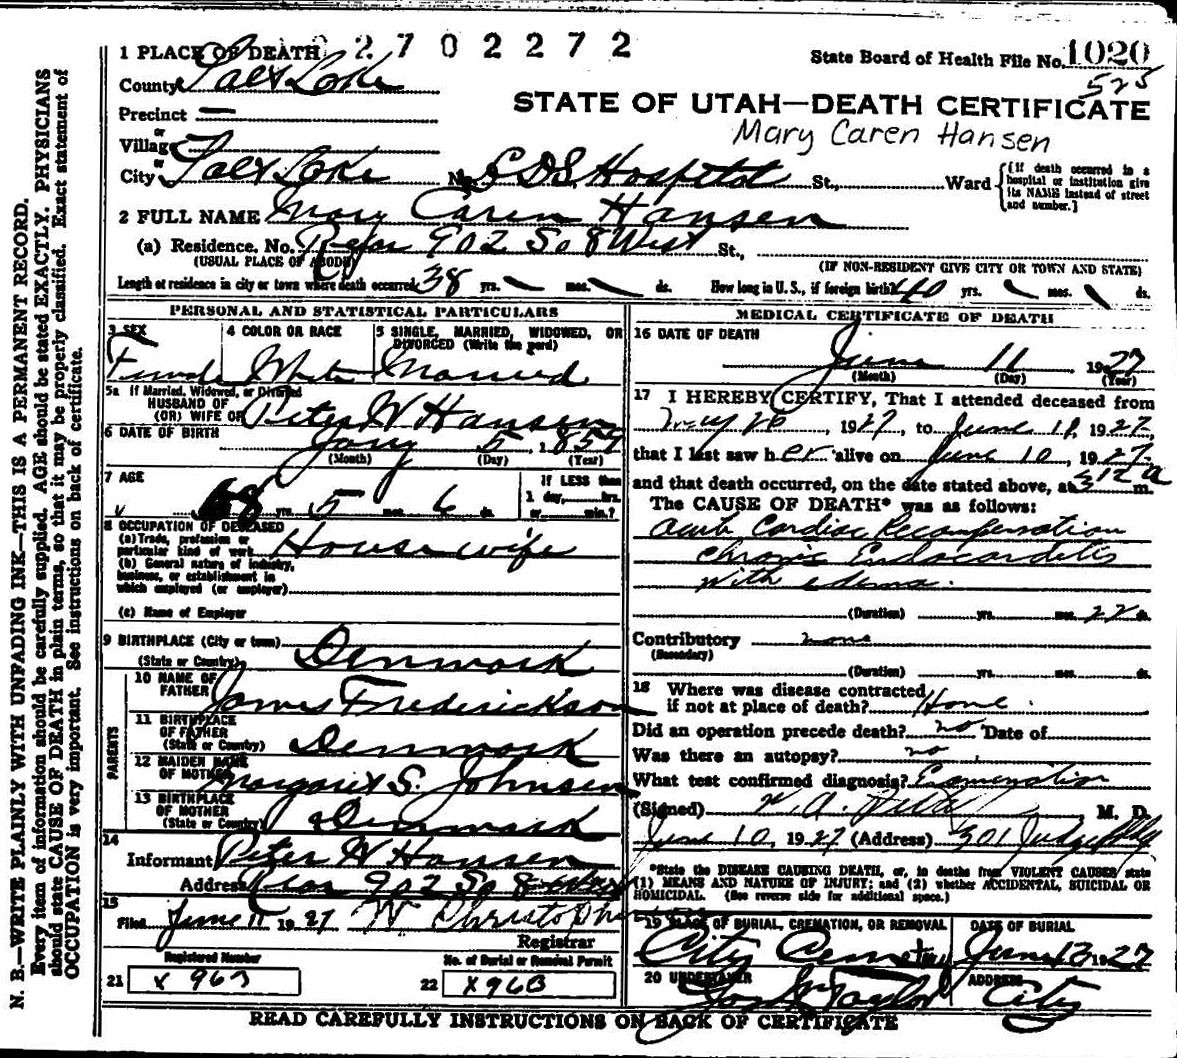 2702272
1 PLACE OF DEATH
State Board of Health File No. 1020
County Salt Lake
525
STATE OF UTAH—DEATH CERTIFICATE
Precinct —
Mary Caren Hansen
or
Village
or
City Salt Lake No. L D S Hospital St., Ward {(If death occurred in a hospital or institution give its NAME instead of street and number.)
2 FULL NAME Mary Caren Hansen
(a) Residence. No. Rear 902 So 8 West St.,
(USUAL PLACE OF ABODE) (IF NON-RESIDENT GIVE CITY OR TOWN AND STATE)
Length of residence in city or town where death occurred 38 yrs. mos. ds. How long in U. S., if foreign birth? 40 yrs. mos. ds.
PERSONAL AND STATISTICAL PARTICULARS
3 SEX 4 COLOR OR RACE 5 SINGLE, MARRIED, WIDOWED, OR DIVORCED (Write the word)
Female White Married
5a If Married, Widowed, or Divorced
HUSBAND OF
(OR) WIFE OF Peter W Hansen
6 DATE OF BIRTH Jany 5 1859
(Month) (Day) (Year)
7 AGE 68 yrs. 5 mos. 6 ds.
If LESS than 1 day, hrs. or min.?
8 OCCUPATION OF DECEASED
(a) Trade, profession or particular kind of work Housewife
(b) General nature of industry, business, or establishment in which employed (or employer)
(c) Name of Employer
9 BIRTHPLACE (City or town)
(State or Country) Denmark
PARENTS
10 NAME OF FATHER James Frederickson
11 BIRTHPLACE OF FATHER (State or Country) Denmark
12 MAIDEN NAME OF MOTHER Margaret S. Johnsen
13 BIRTHPLACE OF MOTHER (State or Country) Denmark
14
Informant Peter W Hansen
Address Rear 902 So 8 West
15
Filed June 11 1927 W Christopherson
Registrar
Registered Number No. of Burial or Removal Permit
21 x 963 22 x963
MEDICAL CERTIFICATE OF DEATH
16 DATE OF DEATH
June 11 1927
(Month) (Day) (Year)
17 I HEREBY CERTIFY, That I attended deceased from
May 20, 1927, to June 11, 1927,
that I last saw her alive on June 10, 1927.
and that death occurred, on the date stated above, at 312 a m.
The CAUSE OF DEATH* was as follows:
Acute Cardiac Decompensation
chronic Endocarditis
with edema.
(Duration) yrs. mos. 22 ds.
Contributory none
(Secondary)
(Duration) yrs. mos. ds.
18 Where was disease contracted
if not at place of death? Home
Did an operation precede death? no Date of
Was there an autopsy? no
What test confirmed diagnosis? Examination
(Signed) M. D.
June 10, 1927 (Address) 301 Judge Bldg
*State the DISEASE CAUSING DEATH, or, in deaths from VIOLENT CAUSES state
(1) MEANS AND NATURE OF INJURY; and (2) whether ACCIDENTAL, SUICIDAL OR
HOMICIDAL. (See reverse side for additional space.)
19 PLACE OF BURIAL, CREMATION, OR REMOVAL DATE OF BURIAL
City Cemetery June 13 1927
20 UNDERTAKER ADDRESS
Taylor City
READ CAREFULLY INSTRUCTIONS ON BACK OF CERTIFICATE
N. B.—WRITE PLAINLY WITH UNFADING INK—THIS IS A PERMANENT RECORD.
Every item of information should be carefully supplied. AGE should be stated EXACTLY. PHYSICIANS
should state CAUSE OF DEATH in plain terms, so that it may be properly classified. Exact statement of
OCCUPATION is very important. See instructions on back of certificate.